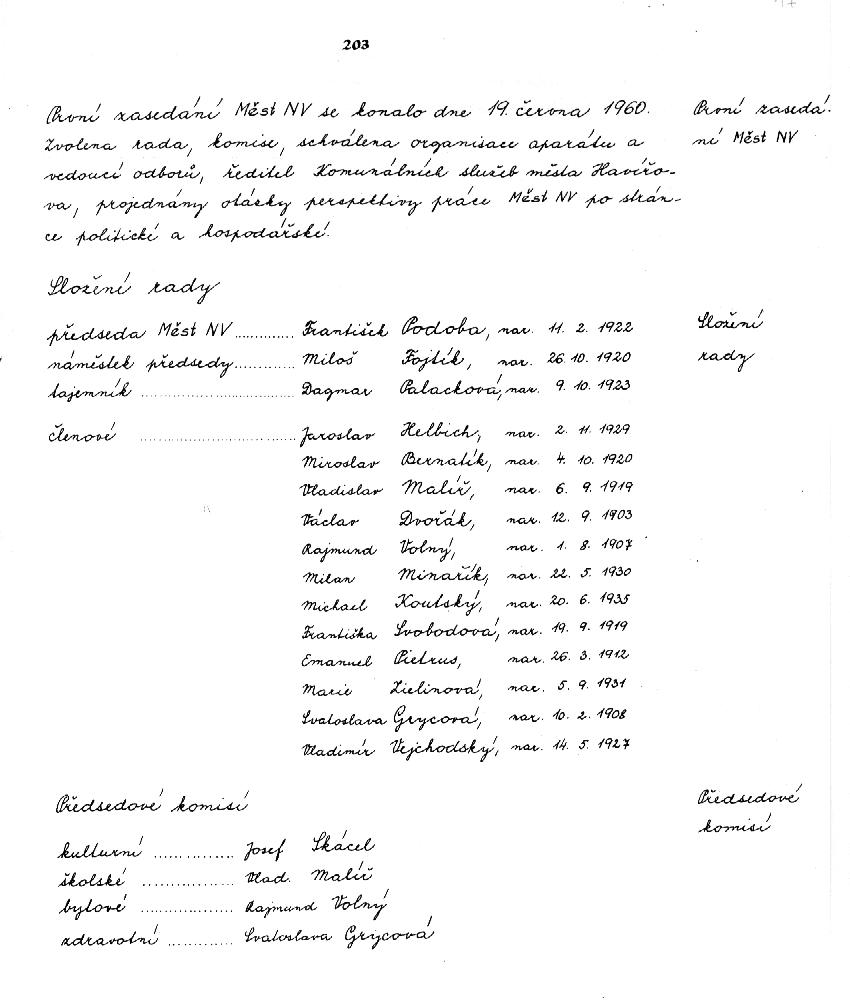 203
První zasedání Měst NV se konalo dne 19. června 1960.
Zvolena rada, komise, schválena organisace aparátu a
vedoucí odborů, ředitel Komunálních služeb města Havířo-
va, projednány otázky perspektivy práce Měst NV po strán-
ce politické a hospodářské.
První zasedá-
ní Měst NV
Složení rady
předseda Měst NV ............. František Podoba, nar. 11. 2. 1922
náměstek předsedy ............. Miloš Fojtík, nar. 26. 10. 1920
tajemník ............. Dagmar Palacková, nar. 9. 10. 1923
Složení
rady
členové ............. Jaroslav Helbich, nar. 2. 11. 1929
Miroslav Bernatík, nar. 4. 10. 1920
Vladislav Malíř, nar. 6. 9. 1919
Václav Dvořák, nar. 12. 9. 1903
Rajmund Volný, nar. 1. 8. 1907
Milan Minařík, nar. 22. 5. 1930
Michael Koutský, nar. 20. 6. 1935
Františka Svobodová, nar. 19. 9. 1919
Emanuel Pietrus, nar. 26. 3. 1912
Marie Zielinová, nar. 5. 9. 1931
Svatoslava Grycová, nar. 10. 2. 1908
Vladimír Vejchodský, nar. 14. 5. 1927
Předsedové komisí
Předsedové
komisí
kulturní ............. Josef Skácel
školské ............. Vlad. Malíř
bytové ............. Rajmund Volný
zdravotní ............. Svatoslava Grycová